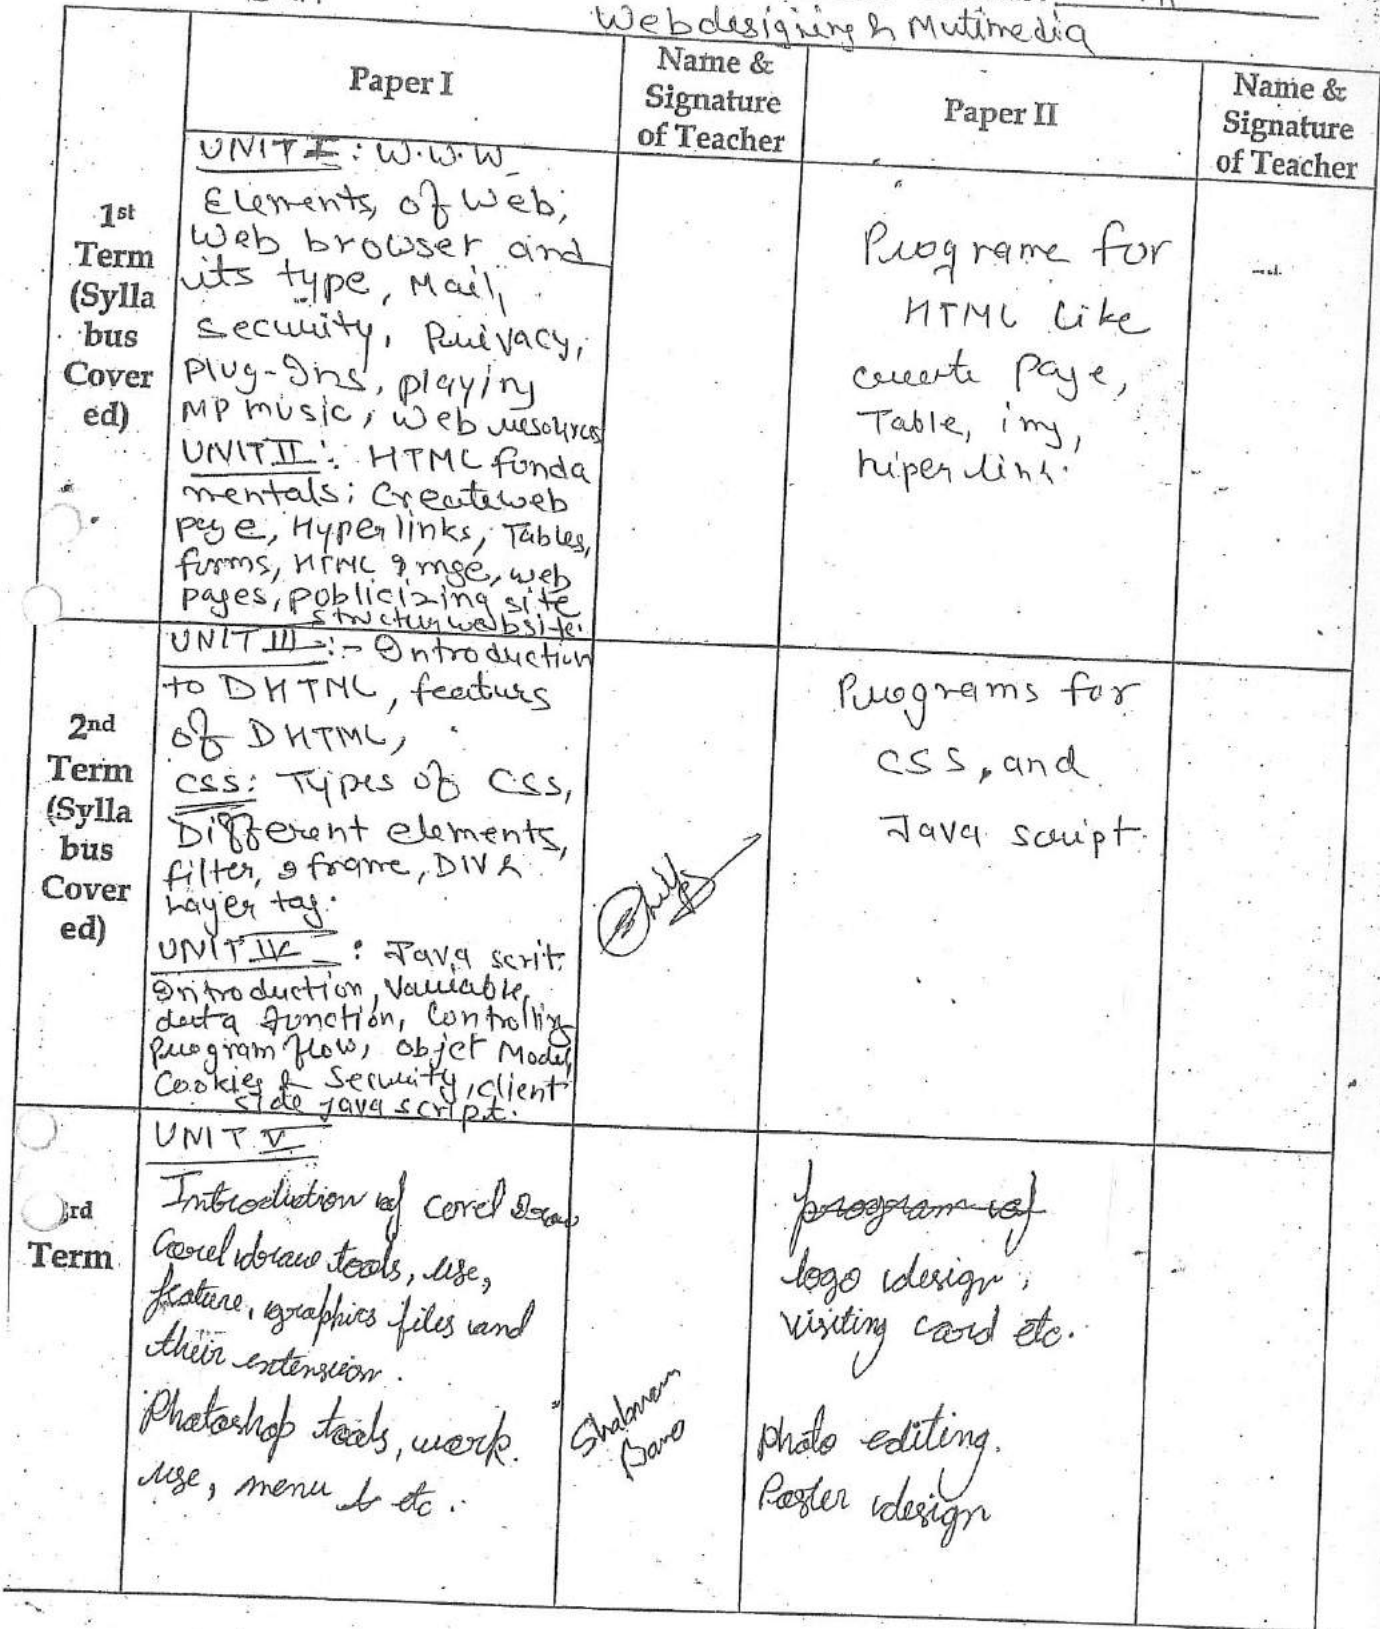 Webdesigning & Mutimedia
Paper I
Name &
Signature
of Teacher
Paper II
Name &
Signature
of Teacher
1st
Term
(Sylla
bus
Cover
ed)
UNIT I : W.W.W
Elements, of Web,
Web browser and
its type, Mail,
security, Privacy,
Plug-Ins, playing
MP music, Web resources
UNIT II : HTML funda
mentals; Create web
page, Hyperlinks, Tables,
forms, HTML Imge, web
pages, publicizing site
structur website.
Programe for
HTML like
create page,
Table, img,
hiper link.
2nd
Term
(Sylla
bus
Cover
ed)
UNIT III :- Introduction
to DHTML, featurs
of DHTML,
CSS: Types of CSS,
Different elements,
filter, Iframe, DIV &
Layer tag.
UNIT IV : Java scrit.
Introduction, Variable,
data function, Controlling
program flow, objet Model,
Cookies & Security, client
side java script.
Programs for
CSS, and
Java script.
rd
Term
UNIT V
Introduction of corel Draw
Corel draw tools, use,
feature, graphics files and
their extension.
Photoshop tools, work.
use, menu & etc.
Shabnam
Bano
program of
logo design,
visiting card etc.
photo editing.
Poster design